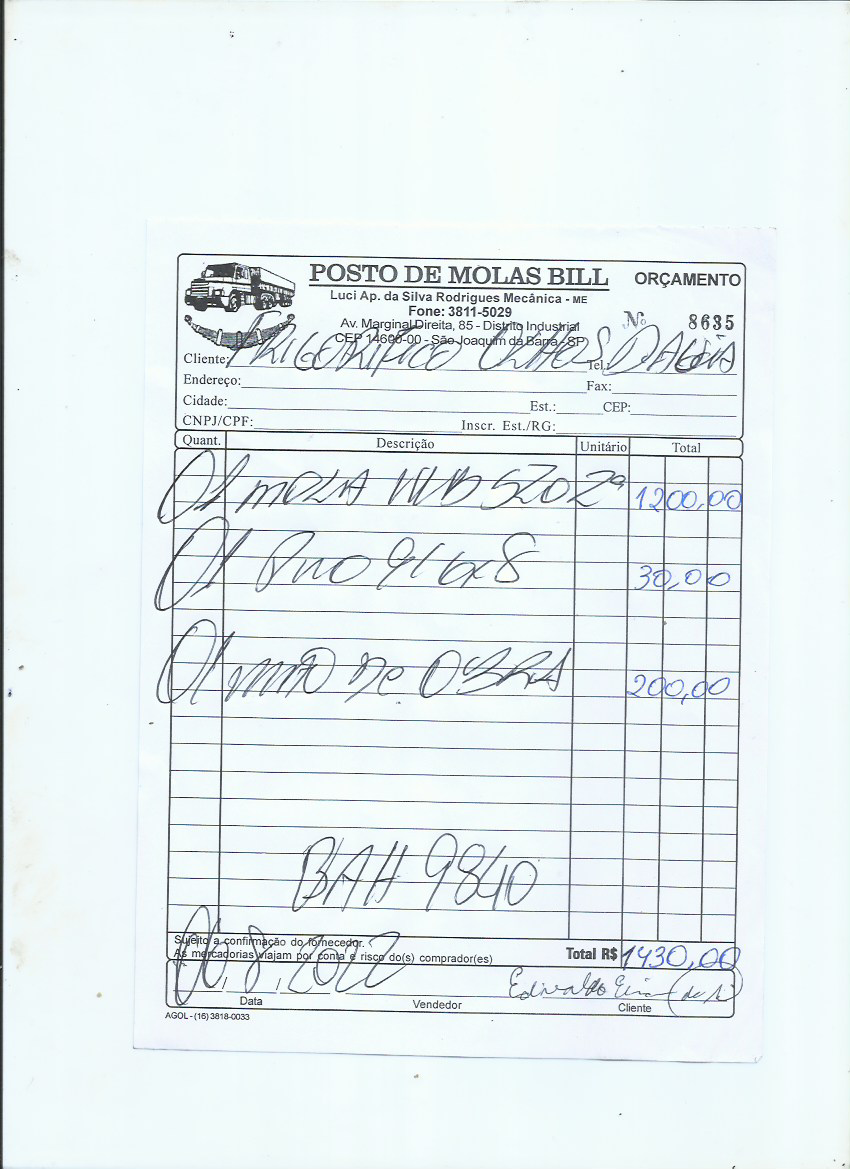 POSTO DE MOLAS BILL
ORÇAMENTO
Luci Ap. da Silva Rodrigues Mecânica - ME
Fone: 3811-5029
Av. Marginal Direita, 85 - Distrito Industrial
Nº 8635
CEP 14600-00 - São Joaquim da Barra - SP
Cliente: FRIGORIFICO OLHOS DAGUA Tel.
Endereço: Fax:
Cidade: Est.: CEP:
CNPJ/CPF: Inscr. Est./RG:
Quant. Descrição Unitário Total
01 MOLA 520 2ª 1200,00
01 8 30,00
01 MAO DE OBRA 200,00
BAH 9840
Sujeito a confirmação do fornecedor.
As mercadorias viajam por conta e risco do(s) comprador(es)
Total R$ 1430,00
06, 8, 2022
Edivaldo
Data Vendedor Cliente
AGOL - (16) 3818-0033